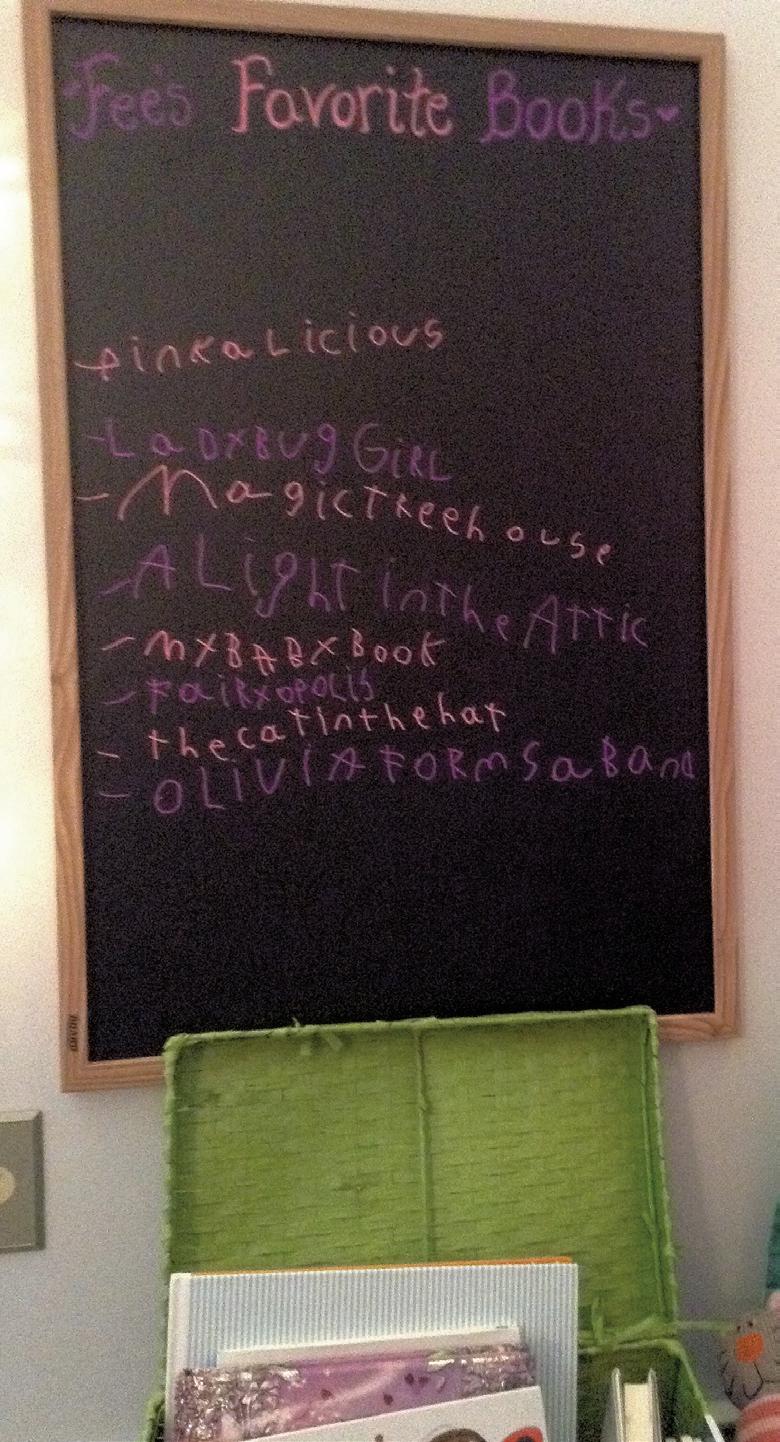 Fee's Favorite Books
-PinkaLicious
-LaDYBUg GiRL
-MagicTReehouse
-A Light intheAttic
-MYBABYBook
-FaiRYOPOLIS
-thecatinthehat
-OLIVIA FORMS a Band